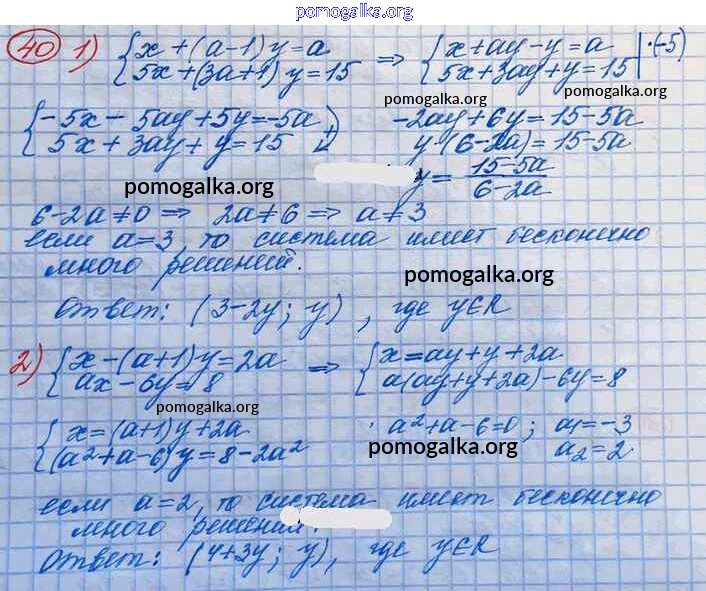 pomogalka.org
40 1) {x + (a-1)y = a => {x+ay-y=a |·(-5)
{5x+(3a+1)y=15 {5x+3ay+y=15
pomogalka.org
pomogalka.org
{-5x-5ay+5y=-5a -2ay+6y=15-5a
{5x+3ay+y=15 y(6-2a)=15-5a
pomogalka.org
y= 15-5a / 6-2a
6-2a≠0 => 2a≠6 => a≠3
если a=3, то система имеет бесконечно
много решений.
pomogalka.org
Ответ: (3-2y; y), где y∈R
2) {x-(a+1)y=2a => {x=ay+y+2a
{ax-6y=8 {a(ay+y+2a)-6y=8
pomogalka.org
pomogalka.org
{x=(a+1)y+2a a²+a-6=0; a₁=-3
{(a²+a-6)y=8-2a² a₂=2
pomogalka.org
если a=2, то система имеет бесконечно
много решений.
Ответ: (4+3y; y), где y∈R